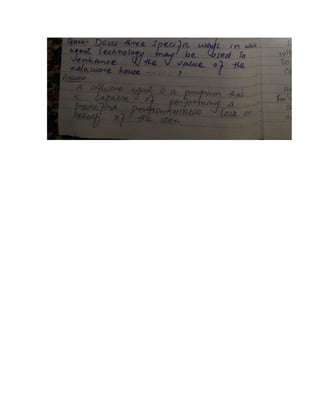 Ques: Does three specific ways in
agent technology may be used to
enhance the value of the
dataware house ...... ?
Answer
A software agent is a program that
is capable of performing a
predefined programmable task on
behalf of the user.